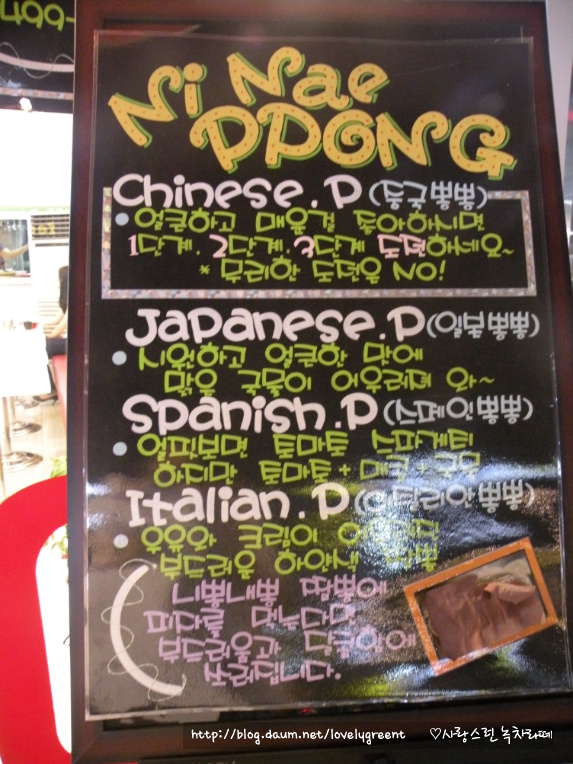 499-
Ni Nae
PPONG
Chinese.P (중국뽕뽕)
• 얼큰하고 매운걸 좋아하시면
1단계. 2단계. 3단계 도전하세요~
* 무리한 도전은 NO!
Japanese.P (일본뽕뽕)
• 시원하고 얼큰한 맛에
맑은 국물이 어우러져 와~
Spanish.P (스페인뽕뽕)
• 얼핏보면 토마토 스파게티
하지만 토마토+매콤+국물
Italian.P (이딸리안뽕뽕)
• 우유와 크림이
부드러운 하얀색 짬뽕
니뽕내뽕 짬뽕에
피자를 먹는다면
부드러움과 달콤함에
쓰러집니다.
http://blog.daum.net/lovelygreent ♡사랑스런녹차라떼